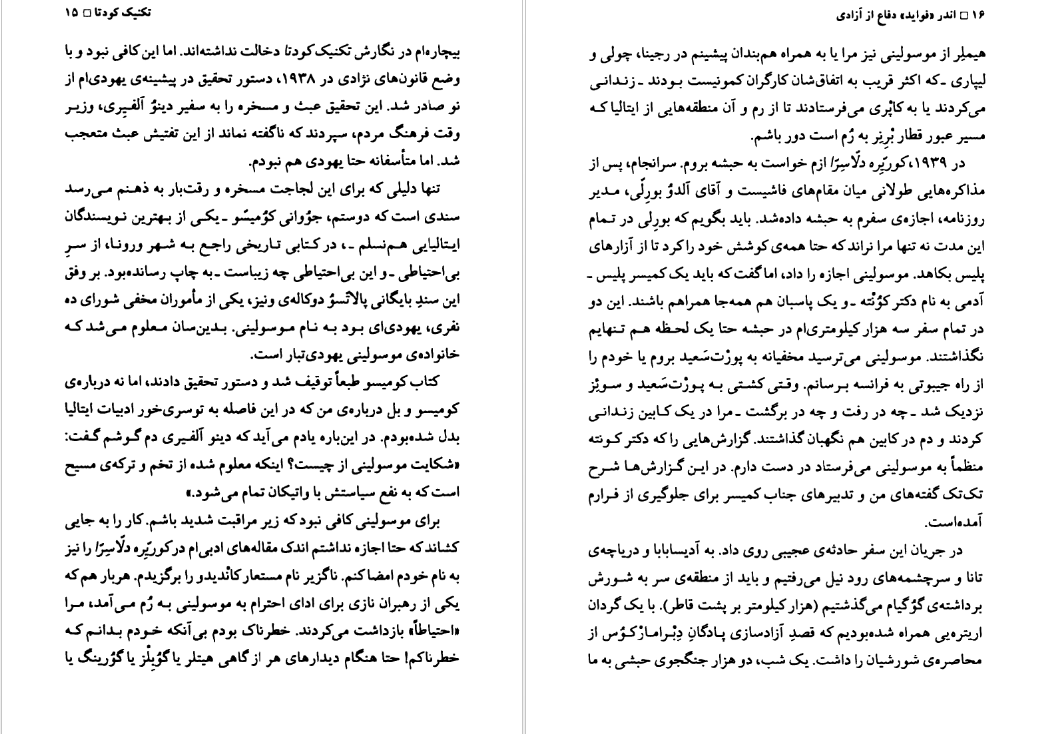 تکنیک کودتا □ ۱۵
بیچاره‌ام در نگارش تکنیک کودتا دخالت نداشته‌اند. اما این کافی نبود و با
وضع قانون‌های نژادی در ۱۹۳۸، دستور تحقیق در پیشینه‌ی یهودی‌ام از
نو صادر شد. این تحقیق عبث و مسخره را به سفیر دینؤ آلفیِری، وزیر
وقت فرهنگ مردم، سپردند که ناگفته نماند از این تفتیش عبث متعجب
شد. اما متأسفانه حتا یهودی هم نبودم.
تنها دلیلی که برای این لجاجت مسخره و رقت‌بار به ذهنم می‌رسد
سندی است که دوستم، جؤوانی کؤمیسّو ـ یکی از بهترین نویسندگان
ایتالیایی هم‌نسلم ـ، در کتابی تاریخی راجع به شهر ورونا، از سرِ
بی‌احتیاطی ـ و این بی‌احتیاطی چه زیباست ـ به چاپ رسانده‌بود. بر وفق
این سندِ بایگانی پالاتسؤ دوکاله‌ی ونیز، یکی از مأموران مخفی شورای ده
نفری، یهودی‌ای بود به نام موسولینی. بدین‌سان معلوم می‌شد که
خانواده‌ی موسولینی یهودی‌تبار است.
کتاب کومیسو طبعاً توقیف شد و دستور تحقیق دادند، اما نه درباره‌ی
کومیسو و بل درباره‌ی من که در این فاصله به توسری‌خور ادبیات ایتالیا
بدل شده‌بودم. در این‌باره یادم می‌آید که دینو آلفیری دم گوشم گفت:
«شکایت موسولینی از چیست؟ اینکه معلوم شده از تخم و ترکه‌ی مسیح
است که به نفع سیاستش با واتیکان تمام می‌شود.»
برای موسولینی کافی نبود که زیر مراقبت شدید باشم. کار را به جایی
کشاند که حتا اجازه نداشتم اندک مقاله‌های ادبی‌ام در کوریّره دلّاسِرّا را نیز
به نام خودم امضا کنم. ناگزیر نام مستعار کانْدیدو را برگزیدم. هربار هم که
یکی از رهبران نازی برای ادای احترام به موسولینی به رُم می‌آمد، مرا
«احتیاطاً» بازداشت می‌کردند. خطرناک بودم بی‌آنکه خودم بدانم که
خطرناکم! حتا هنگام دیدارهای هر از گاهی هیتلر یا گؤبِلْز یا گؤرینگ یا
۱۶ □ اندر «فواید» دفاع از آزادی
هیملِر از موسولینی نیز مرا یا به همراه هم‌بندان پیشینم در رجینا، چولی و
لیپاری ـ که اکثر قریب به اتفاق‌شان کارگران کمونیست بودند ـ زندانی
می‌کردند یا به کاپْری می‌فرستادند تا از رم و آن منطقه‌هایی از ایتالیا که
مسیر عبور قطار بْرِنِر به رُم است دور باشم.
در ۱۹۳۹، کوریّره دلّاسِرّا ازم خواست به حبشه بروم. سرانجام، پس از
مذاکره‌هایی طولانی میان مقام‌های فاشیست و آقای آلدؤ بورِلّی، مدیر
روزنامه، اجازه‌ی سفرم به حبشه داده‌شد. باید بگویم که بورِلی در تمام
این مدت نه تنها مرا نراند که حتا همه‌ی کوشش خود را کرد تا از آزارهای
پلیس بکاهد. موسولینی اجازه را داد، اما گفت که باید یک کمیسر پلیس ـ
آدمی به نام دکتر کؤنْته ـ و یک پاسبان هم همه‌جا همراهم باشند. این دو
در تمام سفر سه هزار کیلومتری‌ام در حبشه حتا یک لحظه هم تنهایم
نگذاشتند. موسولینی می‌ترسید مخفیانه به پورْت‌سَعید بروم یا خودم را
از راه جیبوتی به فرانسه برسانم. وقتی کشتی به پورْت‌سَعید و سوئِز
نزدیک شد ـ چه در رفت و چه در برگشت ـ مرا در یک کابین زندانی
کردند و دم در کابین هم نگهبان گذاشتند. گزارش‌هایی را که دکتر کونته
منظماً به موسولینی می‌فرستاد در دست دارم. در این گزارش‌ها شرح
تک‌تک گفته‌های من و تدبیرهای جناب کمیسر برای جلوگیری از فرارم
آمده‌است.
در جریان این سفر حادثه‌ی عجیبی روی داد. به آدیسابابا و دریاچه‌ی
تانا و سرچشمه‌های رود نیل می‌رفتیم و باید از منطقه‌ی سر به شورش
برداشته‌ی گؤگیام می‌گذشتیم (هزار کیلومتر بر پشت قاطر). با یک گردان
اریتره‌یی همراه شده‌بودیم که قصدِ آزادسازی پادگانِ دِبْرامارْکؤس از
محاصره‌ی شورشیان را داشت. یک شب، دو هزار جنگجوی حبشی به ما